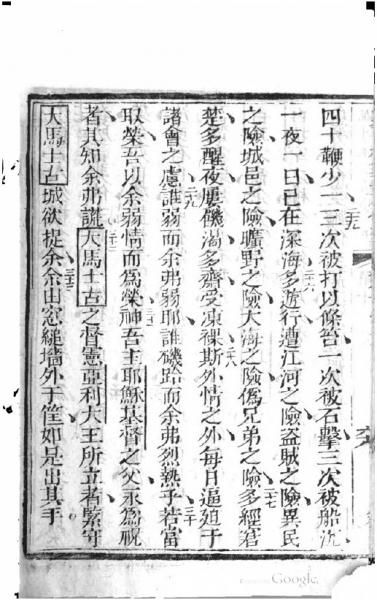 四十鞭少一二五三次被打以條笞一次被石擊三次被船沉
一夜一日已在深海二六多遊行遭江河之險盜賊之險異民
之險城邑之險曠野之險大海之險偽兄弟之險二七多經窘
楚多醒夜屢饑渴多齋受凍裸二八斯外情之外每日逼廹于
諸會之慮二九誰弱而余弗弱耶誰磯跲而余弗烈熱乎三十若當
取榮吾以余弱情而為榮三一神吾主耶穌基督之父永為祝
者其知余弗謊三二大馬士古之督憲亞利大王所立者緊守
大馬士古城欲捉余三三余由窓縋墻外于筐如是出其手
Google